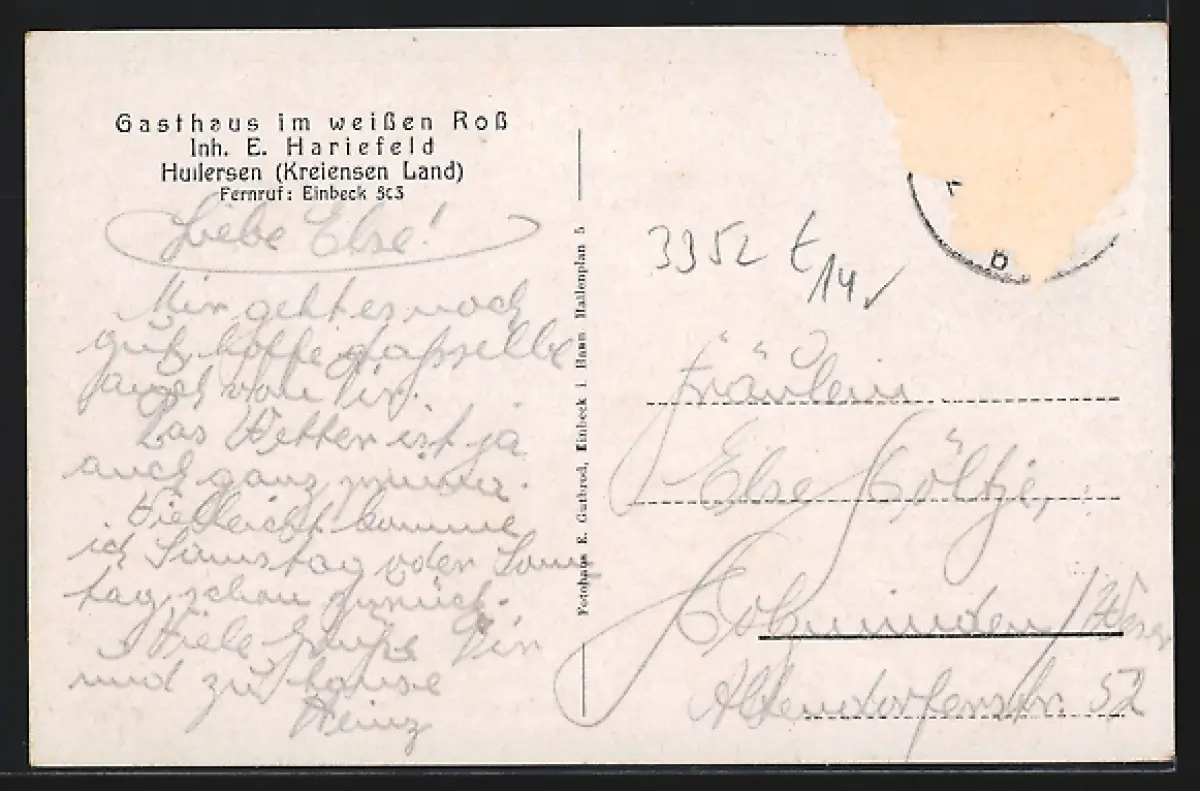 Gasthaus im weißen Roß
Inh. E. Hariefeld
Hullersen (Kreiensen Land)
Fernruf: Einbeck 563
Liebe Else!
Mir geht es noch
gut, hoffe dasselbe
auch von Dir.
Das Wetter ist ja
auch ganz
Vielleicht komme
ich Samstag oder Sonn
tag schon zurück.
Viele Grüße Dir
und zu hause
Heinz
Fotohaus E. Gutbrod, Einbeck i. Hann Hallenplan 5
3352 t
14
Fräulein
Else Költje,
Holzminden / Weser
Altendorferstr. 52